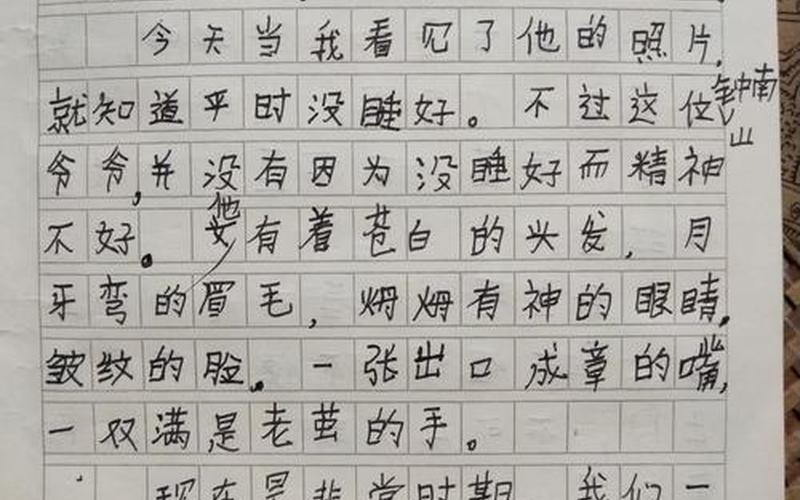 今天当我看见了他的照片,
就知道平时没睡好。不过这位钟南山
爷爷,并没有因为没睡好而精神
不好。他有着苍白的头发,月
牙弯的眉毛,炯炯有神的眼睛,
皱纹的脸。一张出口成章的嘴,
一双满是老茧的手。
现在是非常时期,我们一